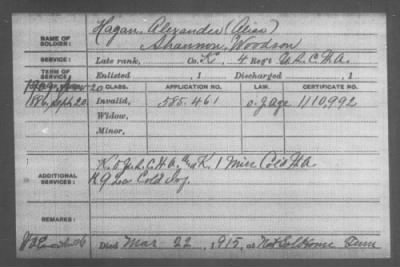 NAME OF SOLDIER: Hagan, Alexander (Alias)
Shannon, Woodson
SERVICE: Late rank, Co. K, 4 Reg't U.S.C.H.A.
TERM OF SERVICE: Enlisted , 1 Discharged , 1
DATE OF FILING. CLASS. APPLICATION NO. LAW. CERTIFICATE NO.
1886, Sept. 20 Invalid, 585.461 1110,992
Widow,
Minor,
ADDITIONAL SERVICES: K. 1 Miss Cold H.A.
K 9 La Cold Inf.
REMARKS:
Died Mar 22, 1915, at Nat Sol Home Tenn